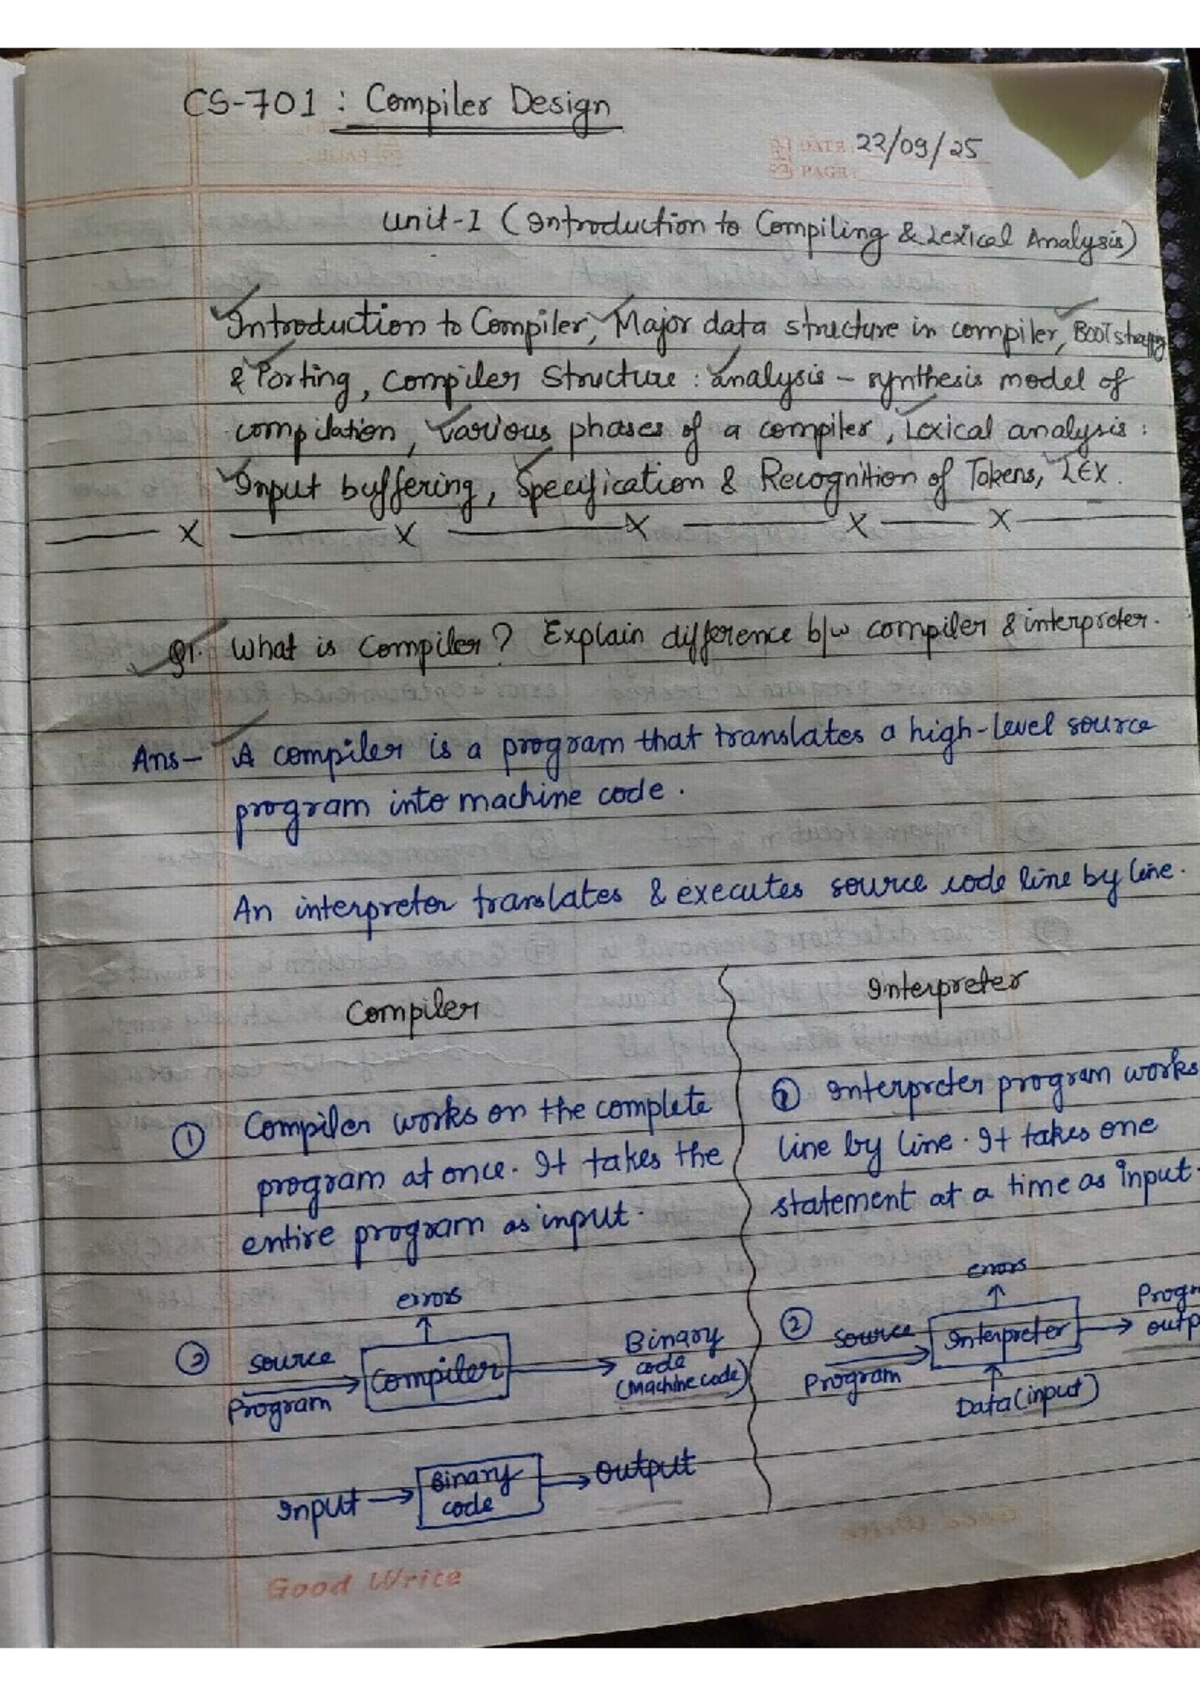 CS-701 : Compiler Design
DATE 22/09/25
PAGE:
Unit-I (Introduction to Compiling & Lexical Analysis)
Introduction to Compiler, Major data structure in compiler, BOOTstrapping
& Porting, Compiler Structure : analysis - synthesis model of
compilation, various phases of a compiler, Lexical analysis :
Input buffering, Specification & Recognition of Tokens, LEX.
X X X X X
Q1. What is Compiler? Explain difference b/w compiler & interpreter.
Ans- A compiler is a program that translates a high-level source
program into machine code.
An interpreter translates & executes source code line by line.
Compiler
① Compiler works on the complete
program at once. It takes the
entire program as input.
② Source Program → Compiler → Binary code (Machine code)
errors
Input → Binary code → output
Interpreter
① Interpreter program works
line by line. It takes one
statement at a time as input.
② Source Program → Interpreter → Progr outp
errors
Data (input)
Good Write